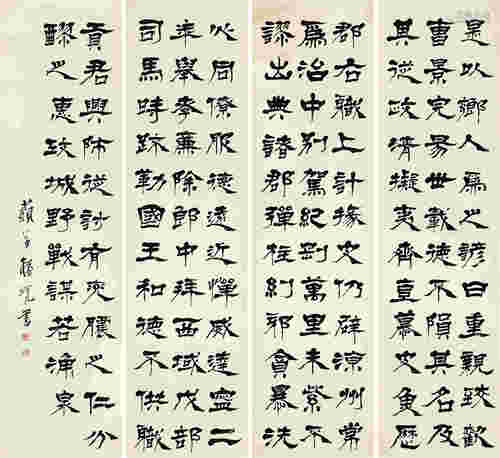 是以鄉人為之諺曰重親致歡
曹景完易世載德不隕其名及
其從政清擬夷齊直慕史魚歷
郡右職上計掾史仍辟涼州常
為治中別駕紀綱萬里朱紫不
謬出典諸郡彈枉糾邪貪暴洗
心同僚服德遠近憚威建寧二
年舉孝廉除郎中拜西域戊部
司馬時疎勒國王和德不供職
貢君興師征討有兗膿之仁分
醪之惠攻城野戰謀若涌泉
書